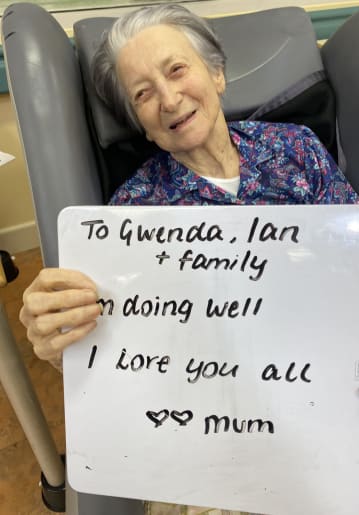 To Gwenda, Ian
+ family
m doing well
I Love you all
♡♡ mum